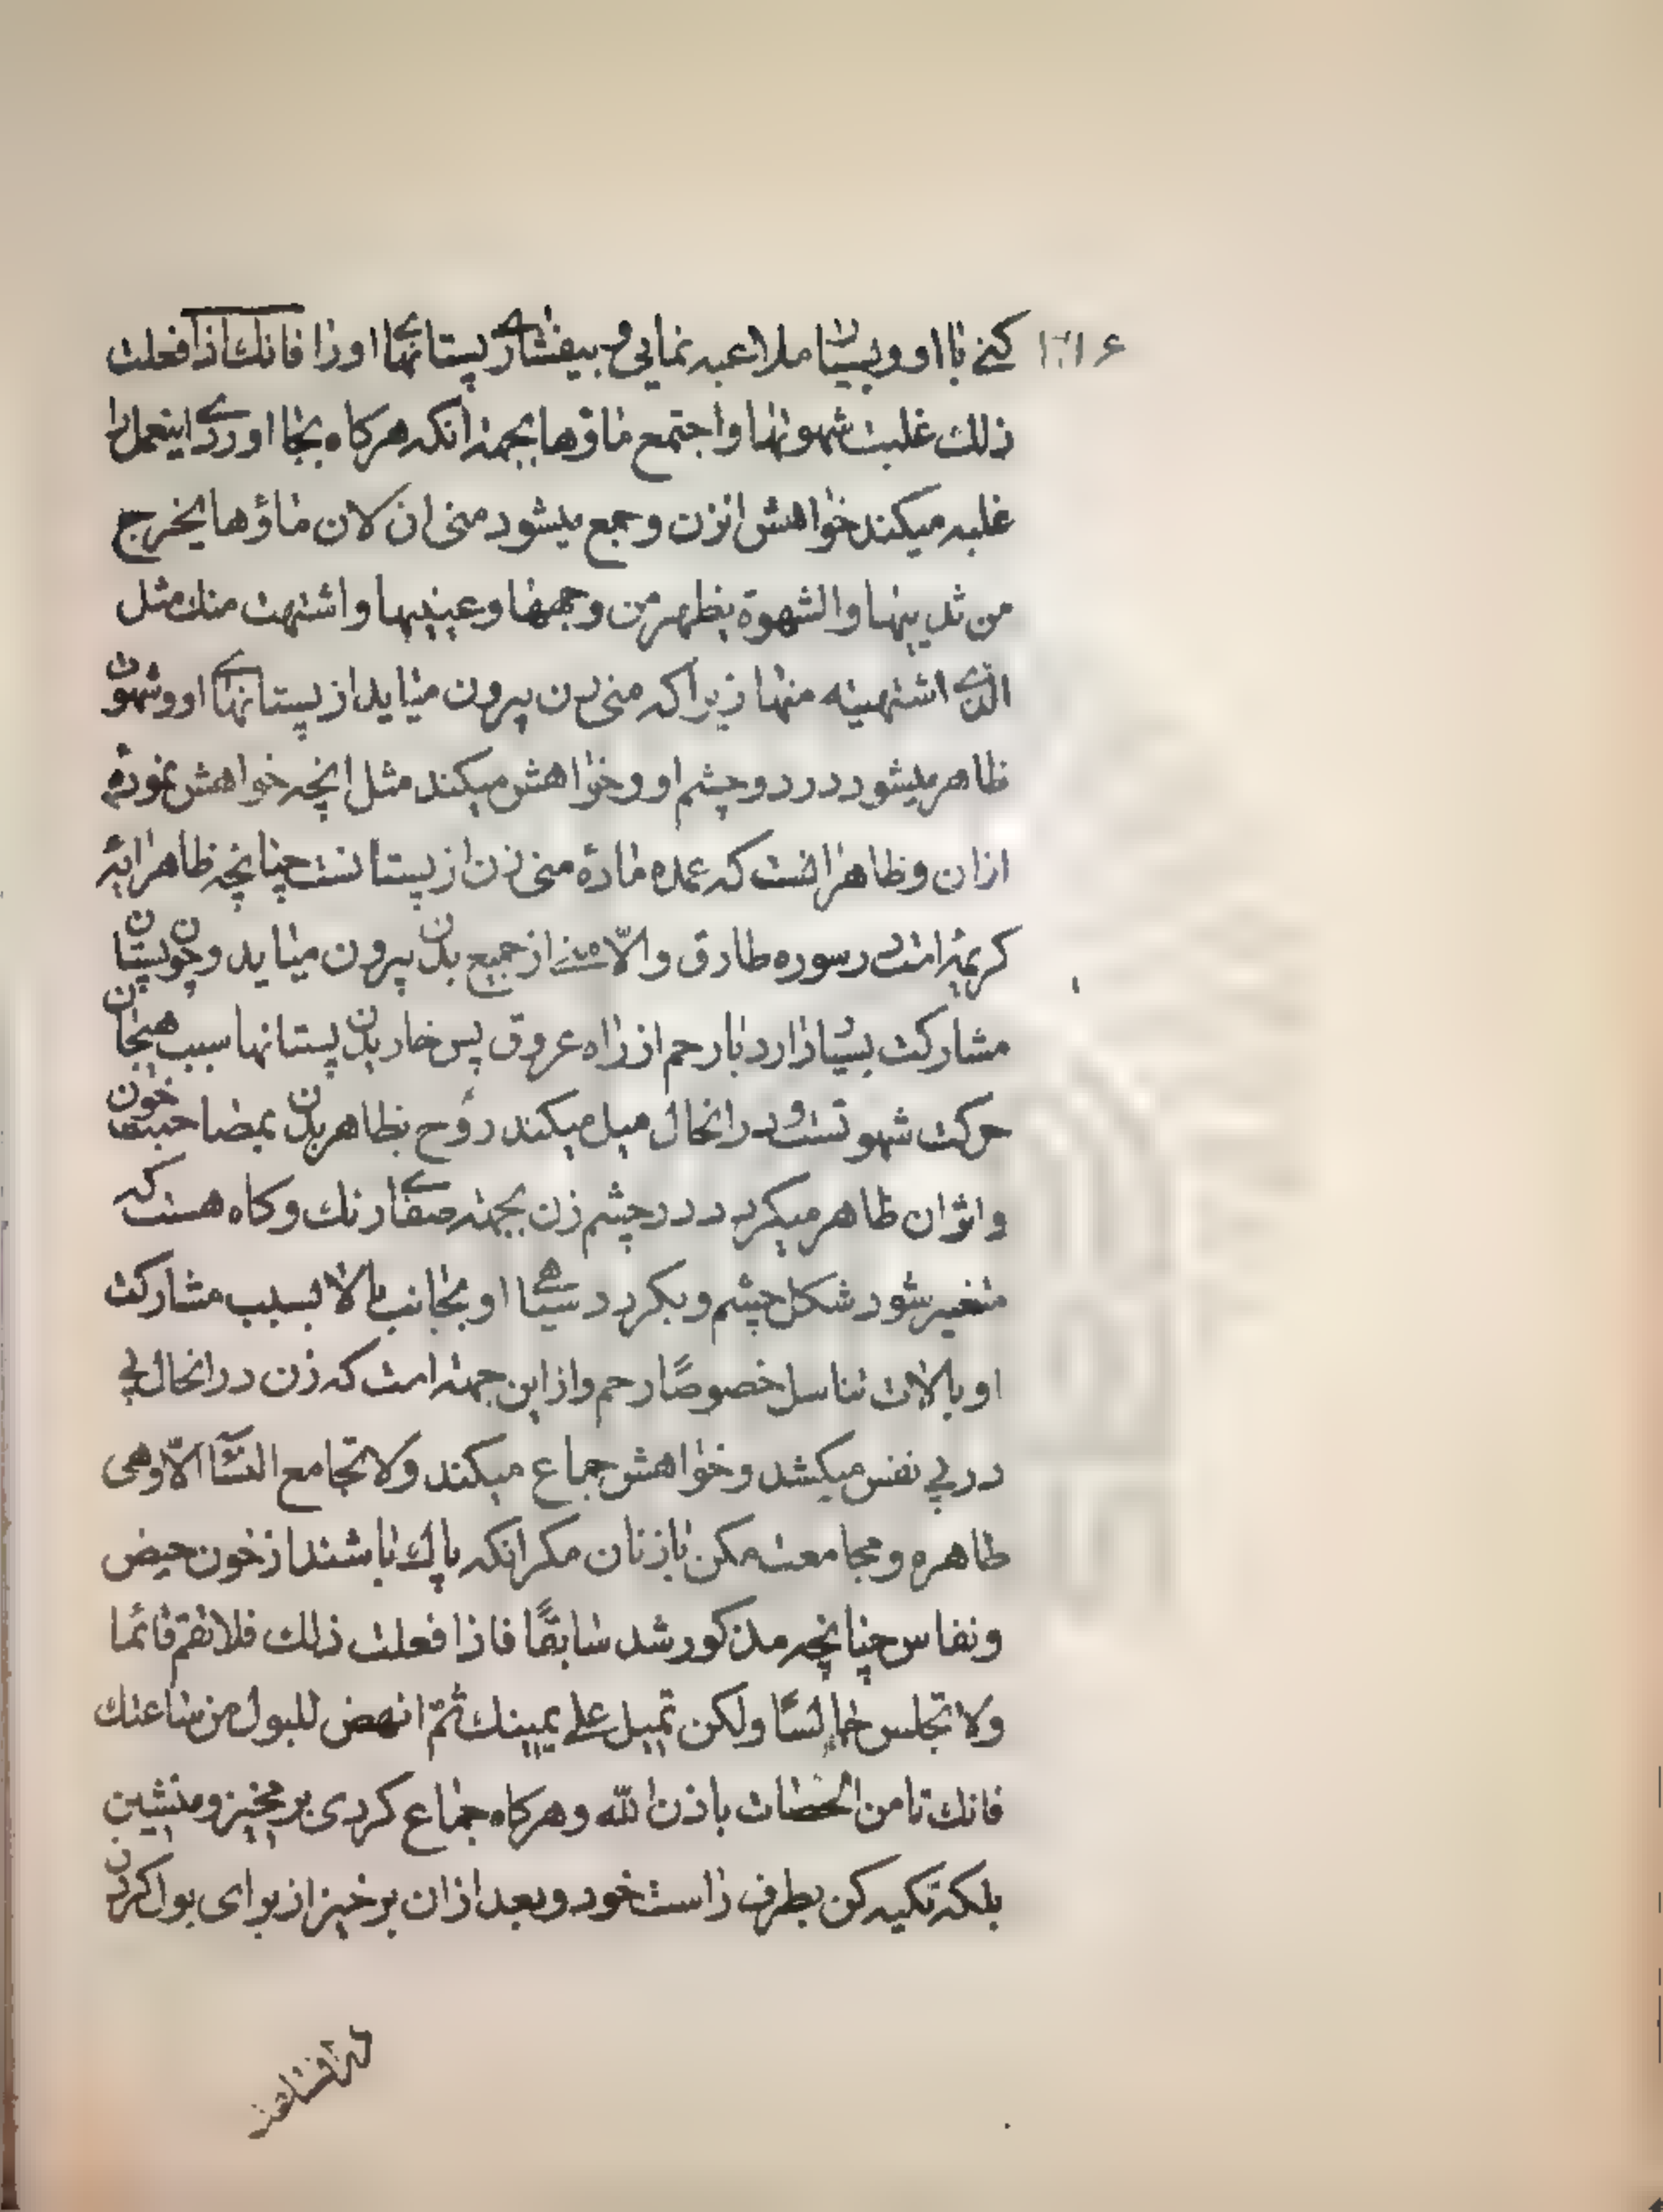 کنی با او و بسیار ملاعبه نمایی و بیفشاری پستانهای او را فانك اذا فعلت
ذلك غلبت شهوتها واجتمع ماؤها بجهة انکه هرکاه بجا اوردی اینعمل را
غلبه میکند خواهش انزن و جمع میشود منی ان لان ماؤها یخرج
من ثدییها والشهوة یظهر من وجهها وعینیها واشتهت منك مثل
الذی اشتهیته منها زیرا که منی زن بیرون میاید از پستانهای او و شهوت
ظاهر میشود در دو چشم او و خواهش میکند مثل انچه خواهش نمودهٔ
ازان و ظاهر انست که عمده مادهٔ منی زن از پستانست چنانچه ظاهر ایهٔ
کریمه است در سوره طارق و الّا منی از جمیع بدن بیرون میاید و چون پستان
مشارکت بسیار دارد با رحم از راه عروق پس خاریدن پستانها سبب هیجان
حرکت شهوتست و در انحال میل میکند روح بظاهر بدن بمصاحبت خون
و اثر ان ظاهر میکردد در چشم زن بجهة صفای رنك و کاه هست که
متغیر شود شکل چشم و بکردد سیاهی او بجانب بالا بسبب مشارکت
او بالات تناسل خصوصًا رحم و از این جهة است که زن در انحال پی
در پی نفس میکشد و خواهش جماع میکند ولا تجامع النسآء الّا وهی
طاهره و مجامعت مکن با زنان مکر انکه پاك باشند از خون حیض
و نفاس چنانچه مذکور شد سابقًا فاذا فعلت ذلك فلا تقم قائمًا
ولا تجلس جالسًا ولکن تمیل علی یمینك ثمّ انهض للبول من ساعتك
فانك تامن الحصات باذن الله و هرکاه جماع کردی برمخیز و منشین
بلکه تکیه کن بطرف راست خود و بعد ازان برخیز از برای بول کردن